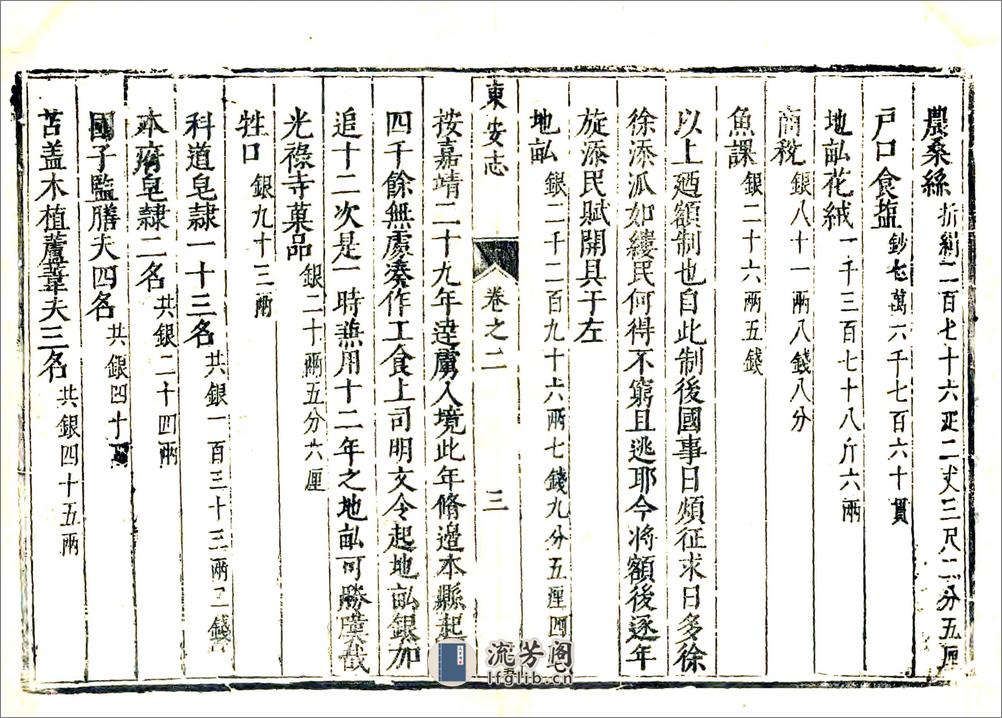 農桑絲折絹二百七十六疋二丈三尺二分五厘
戶口食塩鈔七萬六千七百六十貫
地畝花絨一千三百七十八斤六兩
商稅銀八十一兩八錢八分
魚課銀二十六兩五錢
以上廼額制也自此制後國事日煩征求日多徐
徐添派如縷民何得不窮且逃耶今將額後逐年
旋添民賦開具于左
地畝銀二千二百九十六兩七錢九分五厘四
東安志
卷之二
三
按嘉靖二十九年達虜入境此年脩邊本縣起
四千餘無處湊作工食上司明文令起地畝銀加
追十二次是一時無用十二年之地畝可勝嘆哉
光祿寺菓品銀二十兩五分六厘
牲口銀九十三兩
科道皂隸一十三名共銀一百三十三兩二錢
本府皂隸二名共銀二十四兩
國子監膳夫四名共銀四十
苫盖木植蘆葦夫三名共銀四十五兩
流芳阁
lfglib.cn